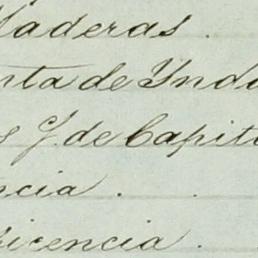 Maderas.
nta de Yndu
s y. de Capita
ncia.
licencia.